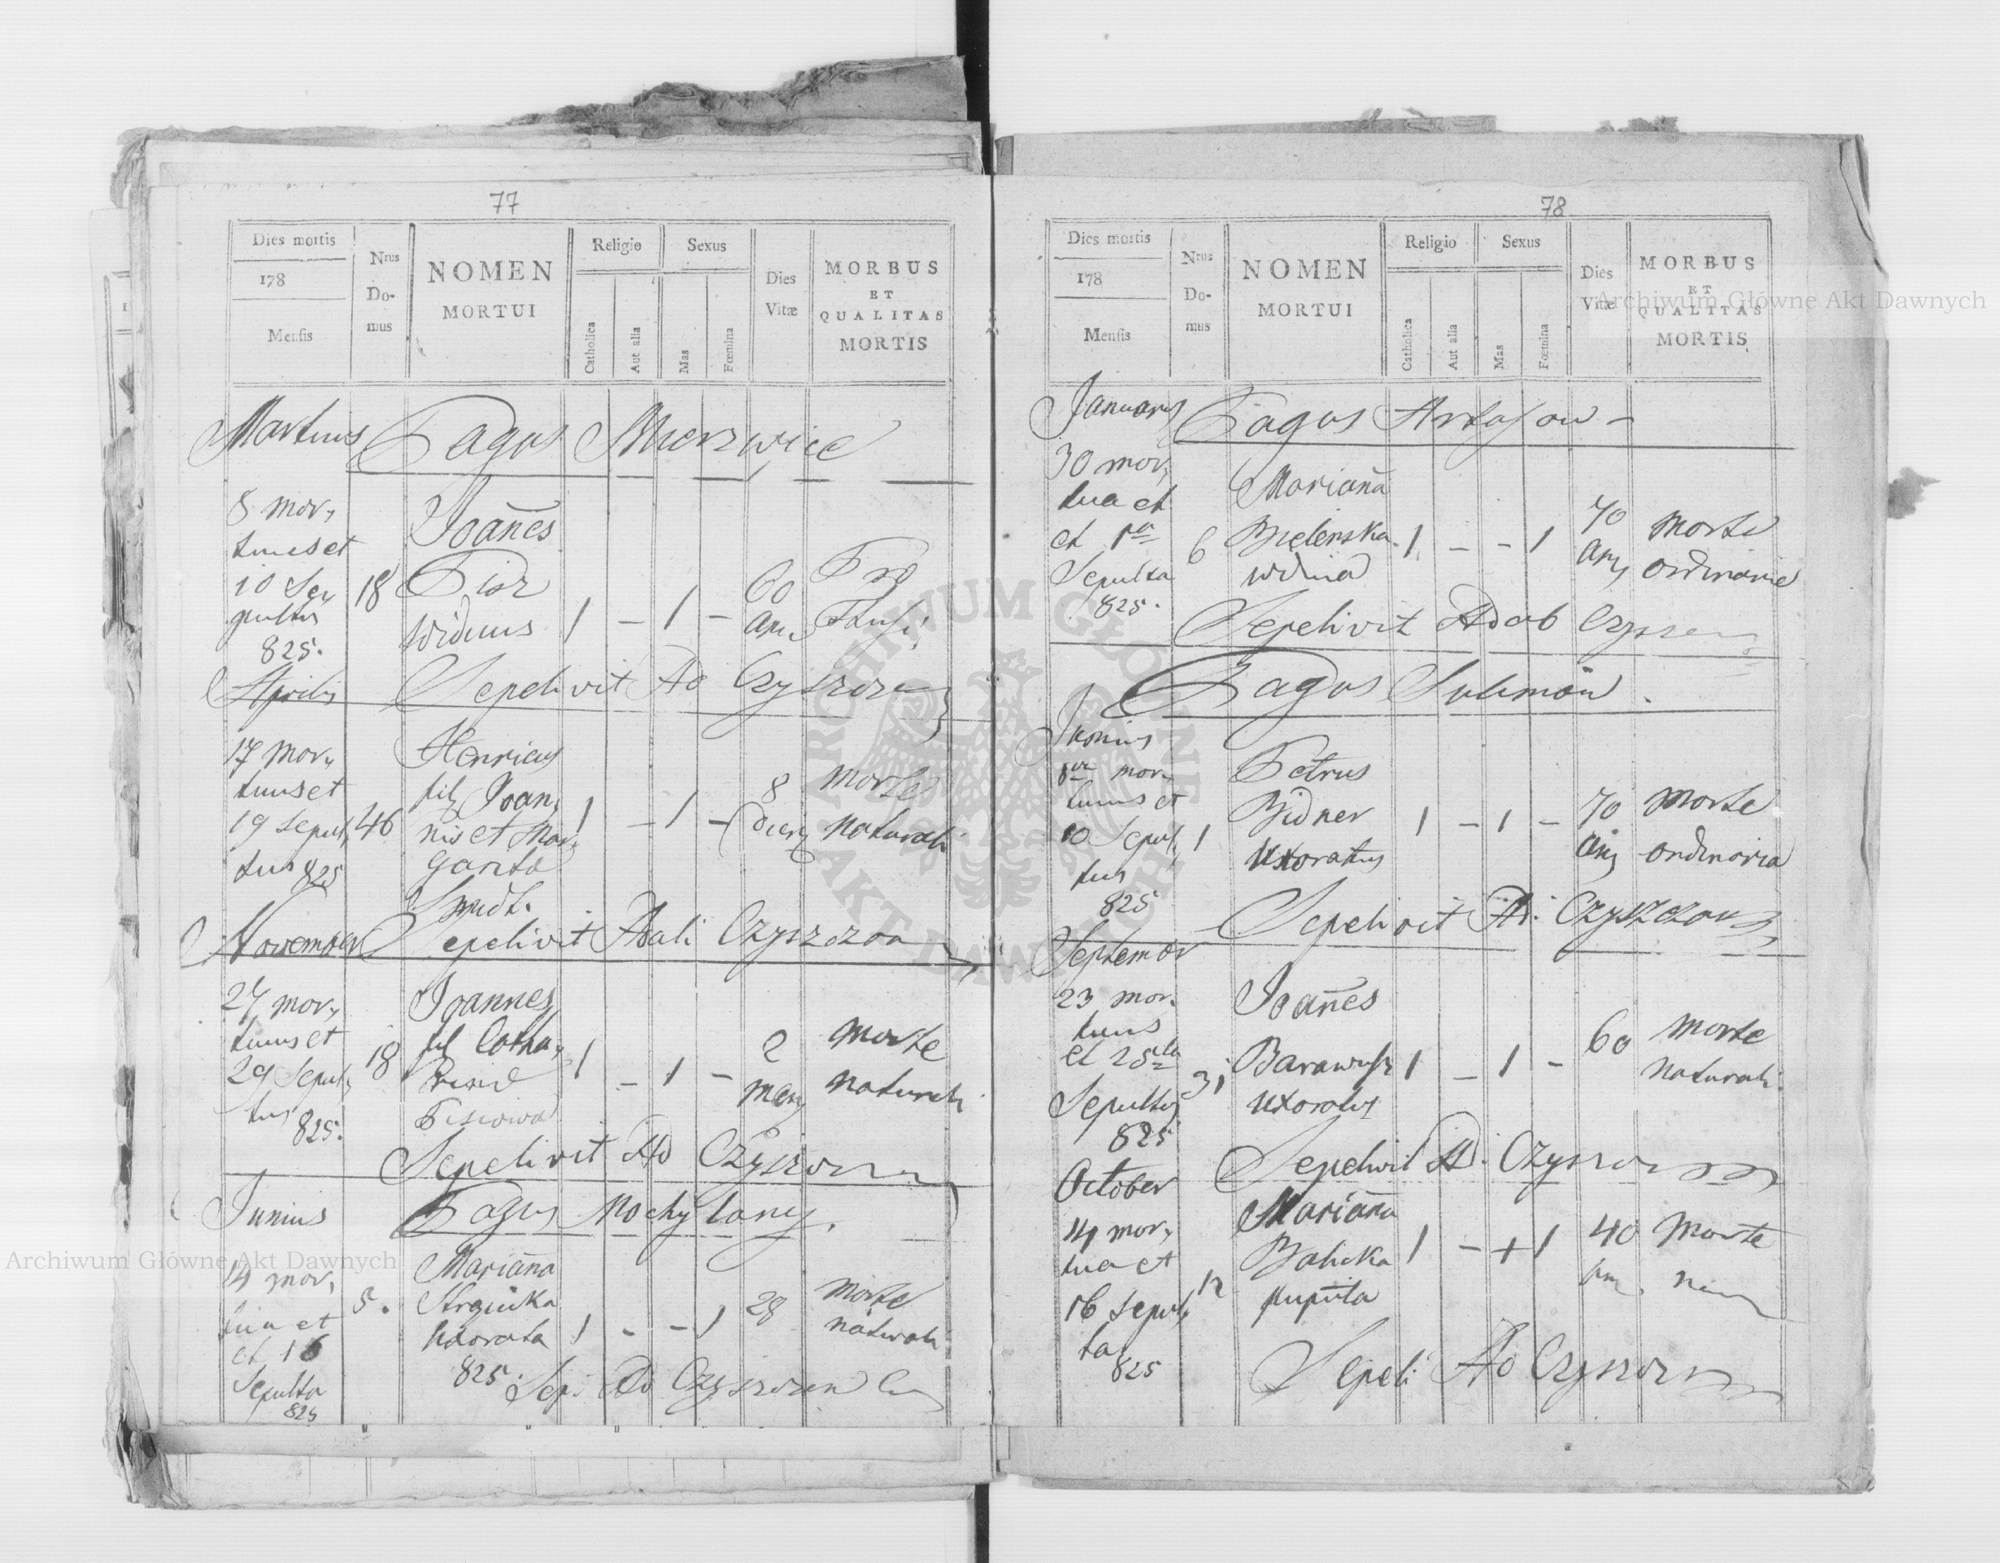 77
Dies mortis
178
Mensis
Nrus Domus
NOMEN
MORTUI
Religio
Catholica
Aut alia
Sexus
Mas
Fœmina
Dies
Vitæ
MORBUS
ET
QUALITAS
MORTIS
Martius Pagus Mierzwice
8 mor,
tuus et
10 Se,
pultus
825.
18
Joañes
viduus
1 – 1 –
60
Aprilis Sepelivit Ad Czyszcz
17 mor,
tuus et
19 sepul,
tus 825
46
Henricus
fil Joan,
nis et Mar,
garita
Smidt.
1 – 1 –
8
dierum
morte
naturali
November Sepelivit Adalb Czyszczon
27 mor,
tuus et
29 Sepul,
tus
825.
18
Joannes
fil Catha,
1 – 1 –
2
morte
naturali
Sepelivit Ad Czyszcz
Junius Pagus Mochylany.
14 mor,
tua et
et 16
Sepulta
825
5.
Mariana
uxorata
1 – – 1
28
morte
naturali
825. Sep: Ad Czyszczon
78
Dies mortis
178
Mensis
Nrus Domus
NOMEN
MORTUI
Religio
Catholica
Aut alia
Sexus
Mas
Fœmina
Dies
Vitæ
MORBUS
ET
QUALITAS
MORTIS
Januarius Pagus Artasow –
30 mor,
tua et
et 1a
Sepulta
825.
6
Mariaña
Bielenska
vidua
1 – – 1
70
morte
ordinarie
Sepelivit Adalb Czyszcz
Pagus Sulimow.
Junius
8va mor,
tuus et
10 Sepul,
tus
825
1
Petrus
Bidner
uxoratus
1 – 1 –
70
morte
ordinaria
Sepelivit Ad. Czyszczon
September
23 mor.
tuus
et 25ta
Sepultus
825
31
Joañes
uxoratus
1 – 1 –
60
morte
naturali.
Sepelivit Ad. Czyszcz
October
14 mor,
tua et
16 Sepul,
ta
825
12
Mariaña
Balicka
1 – + 1
40
morte
Sepeli: Ad Czyszcz
Archiwum Główne Akt Dawnych
Archiwum Główne Akt Dawnych
ARCHIWUM GŁÓWNE AKT DAWNYCH